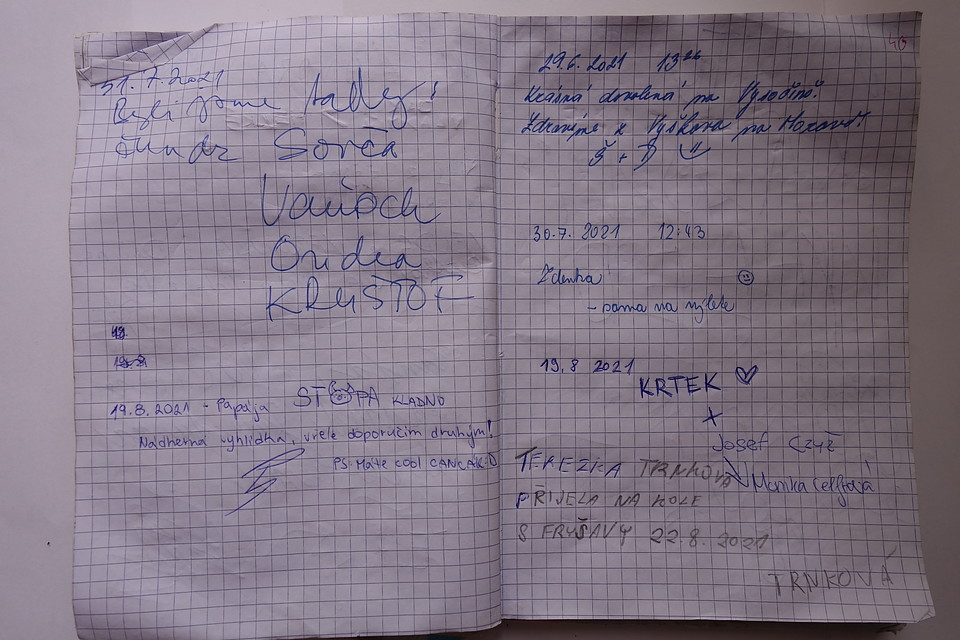 31.7.2021
Byli jsme tady!
Sorča
Vanioch
Ondra
KRYŠTOF
19.8.2021 - Papája STOPA KLADNO
Nádherná vyhlídka, vřele doporučim druhým!
PS: Máte cool CANCÁK:D
40
29.6.2021 13:26
Krásná dovolená na Vysočině!
Zdravíme z Vyškova na Moravě!
Š + D
30.7. 2021 12:43
Zdenka
- sama na výletě
19.8 2021
KRTEK ♡
+
Josef
Monika
TEREZKA TRNKOVÁ
PŘIJELA NA KOLE
S FRYŠAVY 22.8. 2021
TRNKOVÁ